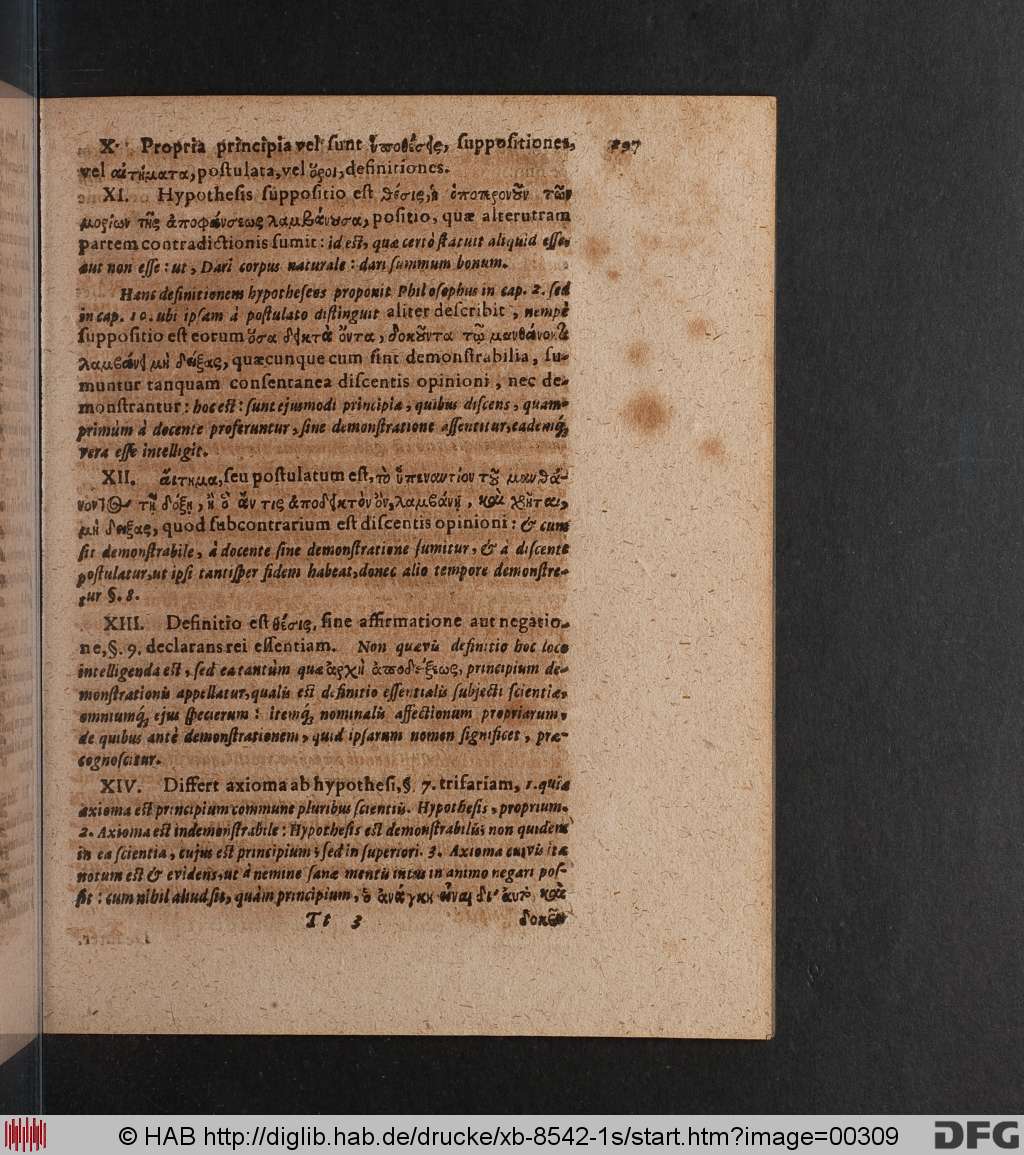 X. Propria principia vel sunt ὑποθέσεις, suppositiones,
897
vel αἰτήματα, postulata, vel ὅροι, definitiones.
XI. Hypothesis suppositio est θέσις, ἡ ὁποτερονοῦν τῶν
μορίων τῆς ἀποφάνσεως λαμβάνουσα, positio, quæ alterutram
partem contradictionis sumit: id est, quæ certò statuit aliquid esse,
aut non esse: ut, Dari corpus naturale: dari summum bonum.
Hanc definitionem hypotheseos proponit Philosophus in cap. 2. sed
in cap. 10. ubi ipsam à postulato distinguit aliter describit, nempè
suppositio est eorum ὅσα δεικτὰ ὄντα, δοκοῦντα τῷ μανθάνοντι
λαμβάνει μὴ δείξας, quæcunque cum sint demonstrabilia, su-
muntur tanquam consentanea discentis opinioni, nec de-
monstrantur: hoc est: sunt ejusmodi principia, quibus discens, quam-
primùm à docente proferuntur, sine demonstratione assentitur, eademq́;
vera esse intelligit.
XII. ἄιτημα, seu postulatum est, τὸ ὑπεναντίον τοῦ μανθά-
νοντος τῇ δόξῃ, ἢ ὃ ἄν τις ἀποδεικτὸν ὂν, λαμβάνῃ, καὶ χρῆται,
μὴ δείξας, quod subcontrarium est discentis opinioni: & cum
sit demonstrabile, à docente sine demonstratione sumitur, & à discente
postulatur, ut ipsi tantisper fidem habeat, donec alio tempore demonstre-
tur §. 8.
XIII. Definitio est θέσις, sine affirmatione aut negatio-
ne, §. 9. declarans rei essentiam. Non quævis definitio hoc loco
intelligenda est, sed ea tantùm quæ ἀρχὴ ἀποδείξεως, principium de-
monstrationis appellatur, qualis est definitio essentialis subjecti scientiæ,
omniumq́; ejus specierum: itemq́; nominalis affectionum propriarum,
de quibus antè demonstrationem, quid ipsarum nomen significet, præ-
cognoscitur.
XIV. Differt axioma ab hypothesi, §. 7. trifariam, 1. quia
axioma est principium commune pluribus scientiis. Hypothesis, proprium.
2. Axioma est indemonstrabile: Hypothesis est demonstrabilis; non quidem
in ea scientia, cujus est principium; sed in superiori. 3. Axioma cuivis ita
notum est & evidens, ut à nemine sanæ mentis intus in animo negari pos-
sit: cum nihil aliud sit, quàm principium, ὃ ἀνάγκη εἶναι δι' αὑτὸ καὶ
Tt 3
δοκεῖν
© HAB http://diglib.hab.de/drucke/xb-8542-1s/start.htm?image=00309
DFG